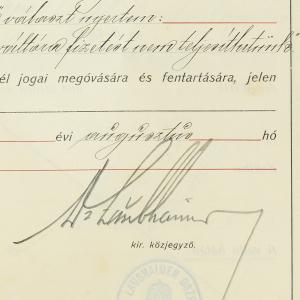 választ nyertem:
váltóra fizetést nem teljesíthetünk"
él jogai megóvására és fentartására, jelen
évi augusztus hó
Dr Laubhaimer
kir. közjegyző.
LAUBHAIMER